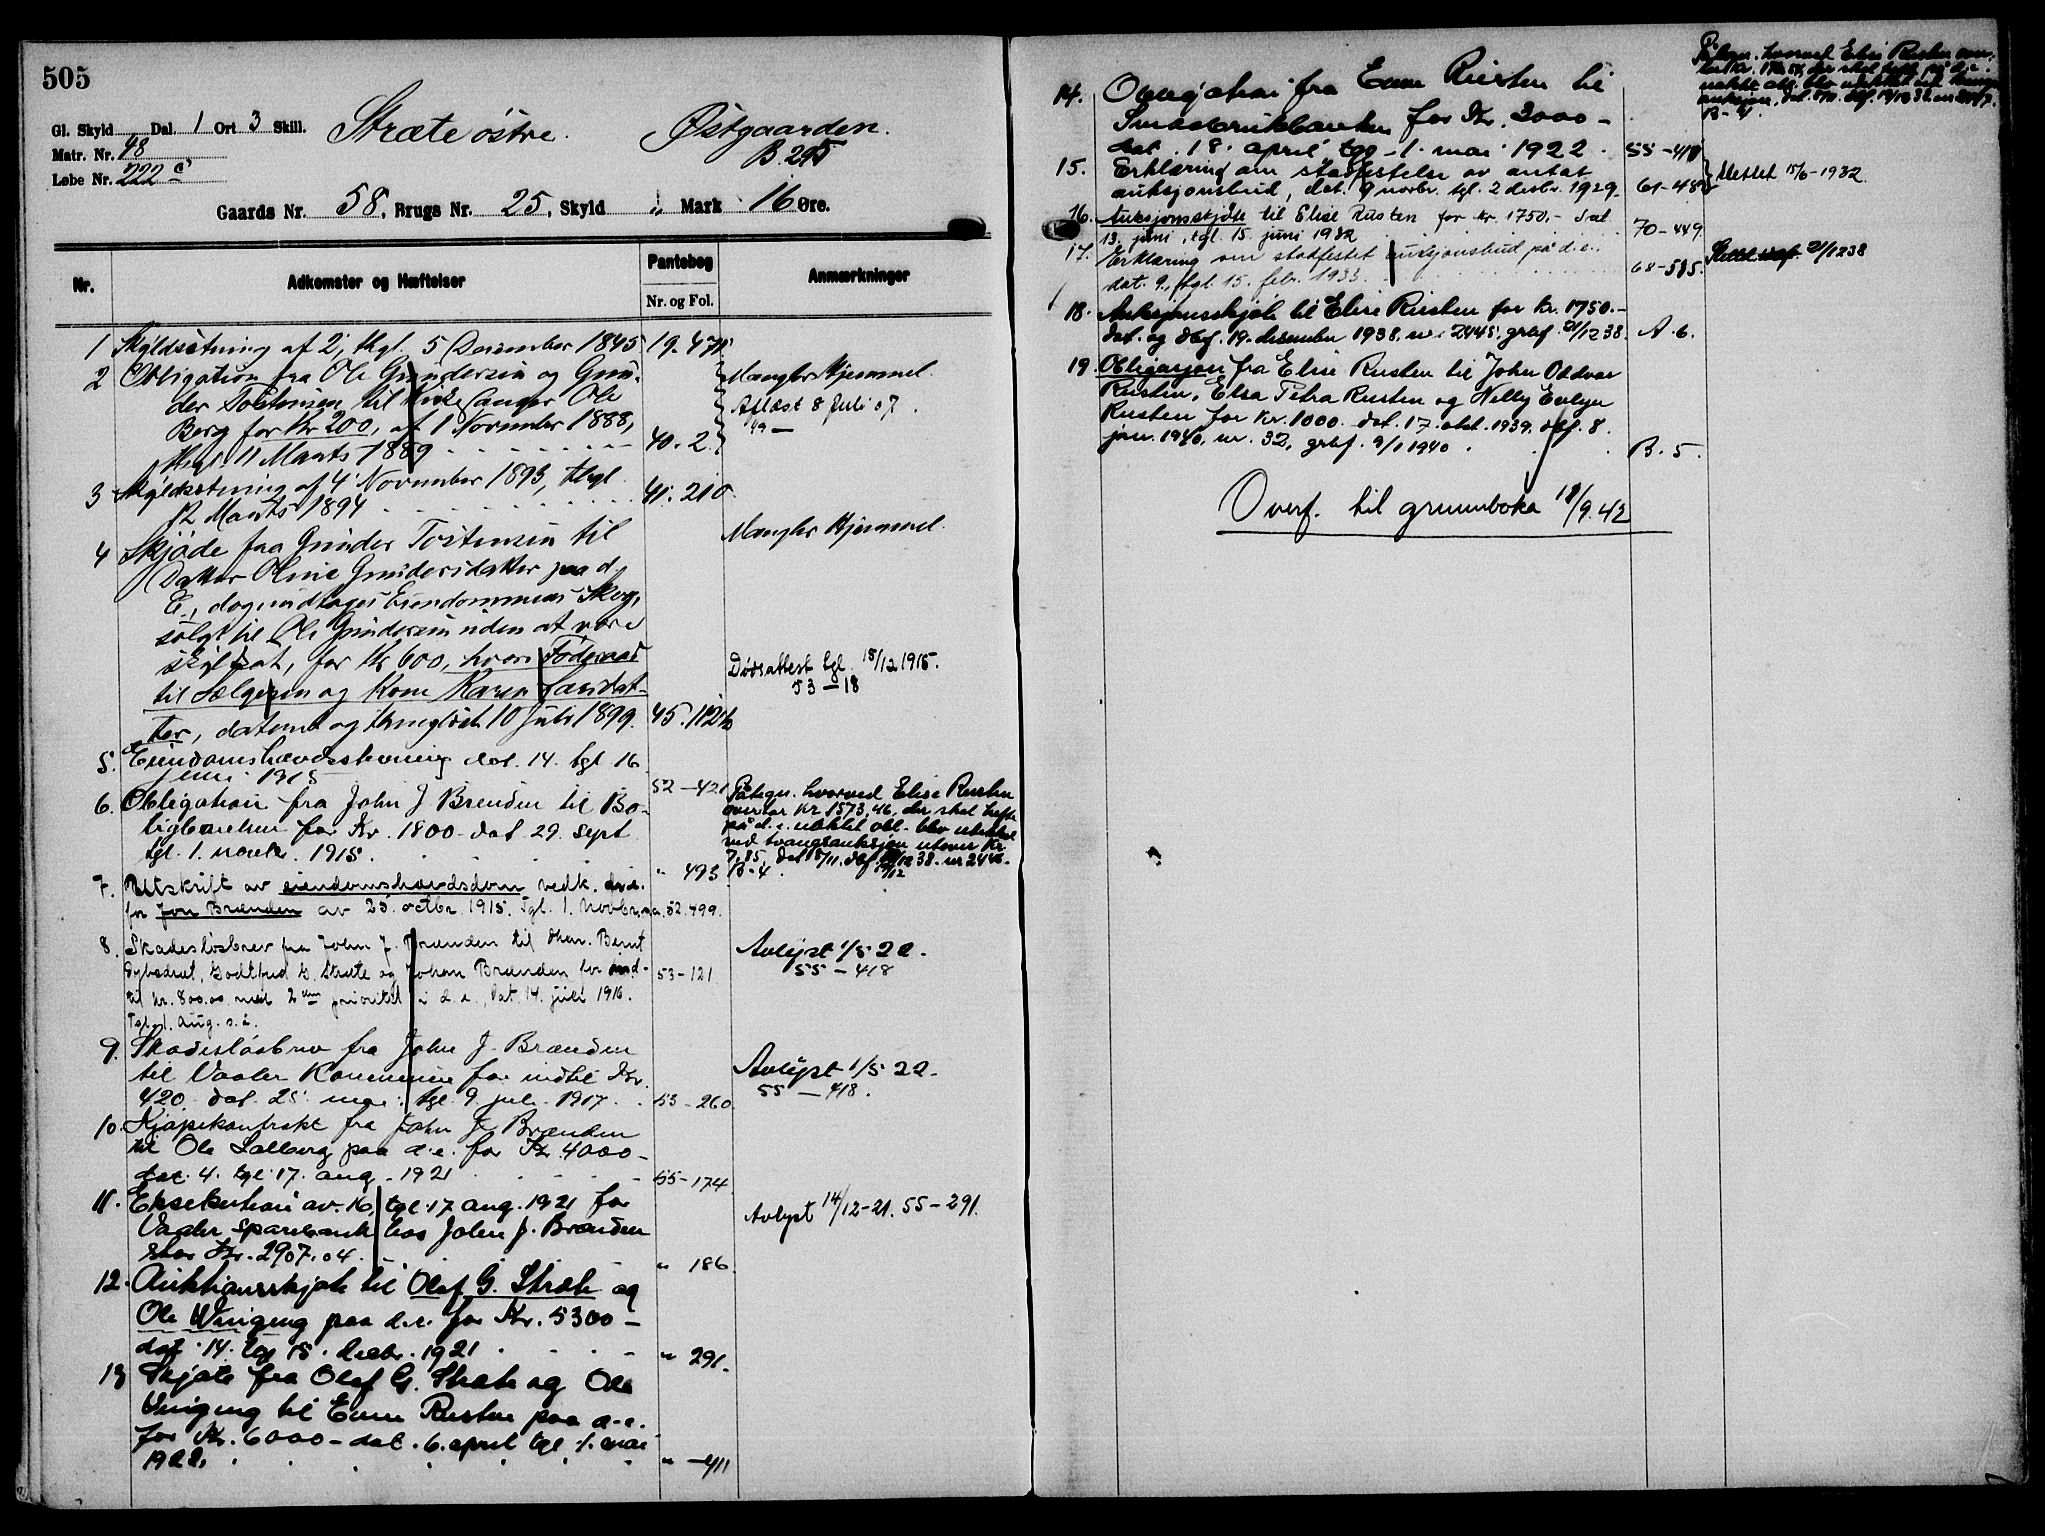 505
Gl. Skyld Dal. 1 Ort 3 Skill. Stræte østre. Østgaarden.
Matr. Nr. 48 B. 295
Løbe Nr. 222 c
Gaards Nr. 58, Brugs Nr. 25, Skyld " Mark 16 Øre.
Nr. Adkomster og Hæftelser Pantebog Anmærkninger
Nr. og Fol.
1 Skyldsetning af 2, thgl. 5 December 1845 19.471
2 Obligation fra Ole Gundersen og Gun- Mangler Hjemmel
der Tostensen til Kirkesanger Ole Aflæst 8 Juli 07.
Berg for Kr 200, af 1 November 1888, 49 —
thgl. 11 Marts 1889 40. 2
3 Skyldsetning af 4 November 1893, thgl
12 Marts 1894 41. 210
4 Skjøde fra Gunder Tostensen til Mangler Hjemmel.
Datter Oline Gundersdatter paa d.
E., dog undtages Eiendommens Skog,
solgt til Ole Gundersen uden at være
skyldsat, for Kr 600, hvori Føderaad Dødsattest tgl. 15/12 1915.
til Sælgeren og Kone Karen Larsdat- 53 — 18
ter, dateret og thinglæst 10 Juli 1899. 45. 112
5. Eiendomshævdsskjønning dat. 14. tgl 16
juni 1915 52 — 421
6. Obligation fra John J Brenden til Bo- Påtegn. hvorved Elise Rusten
ligbanken for Kr. 1800 - dat 29. sept overtar kr 1573,46, der skal hefte
tgl. 1. novbr. 1915. " 493 på d.e. nævnte obl. blev utslettet
ved tvangsauksjon utover kr
7,85, dat 5/11. dbf. 19/12 38. nr 2446.
B-4.
7. Utskrift av eiendomshævdsdom vedk. d.e.
for Jon Brænden av 25 octbr 1915. Tgl. 1. Novbr. s.a. 52. 499.
8. Skadesløsbrev fra John J. Brænden til Bernt Avlyst 1/5 22.
Dybedræt, Godtfred G. Stræte og Johan Brænden for ind- 53-121 55 — 418
til kr. 800.00 med 2den prioritet i d.e., Dat. 14. juli 1916.
Tgl. 1. Aug. s.å.
9. Skadesløsbrev fra John J. Brænden Avlyst 1/5 22.
til Vaaler Kommune for indtil Kr. 55 — 418.
420 - dat. 25 mai tgl. 9 juli 1917. 53 - 260
10. Kjøpekontrakt fra John J. Brænden
til Ole Solberg paa d.e. for Kr. 4000 -
dat. 4. tgl. 17. aug. 1921 55-174
11. Eksekution av 16, tgl. 17 aug. 1921 for Avlyst 14/12-21. 55 - 291.
Vaaler Sparebank hos John J. Brænden
stor Kr. 2907.04. " 186
12. Auktionsskjøte til Olaf G. Stræte og
Ole Viniging paa d.e. for Kr. 5300 -
dat. 14. tgl 15. decbr. 1921 " 291.
13 Skjøte fra Olaf G. Stræte og Ole
Viniging til Enun Rusten paa d.e.
for Kr. 6000 - dat. 6. april tgl 1. mai
1922. " — 411
14. Obligation fra Enun Rusten til Påtegn. hvorved Elise Rusten over-
Småbrukbanken for Kr. 2000 -
dat. 18. april tgl - 1. mai 1922. 55 - 411 B - 4.
15. Erklæring om stadfestelse av antat
auksjonsbud, dat. 9 novbr. tgl. 2 desbr. 1929. 61-48 Slettet 15/6-1932
16. Auksjonsskjøte til Elise Rusten for kr. 1750,- dat
13. juni, tgl. 15. juni 1932 70-449
17. Erklæring om stadfestet auksjonsbud på d.e.
dat. 9., tgl. 15. febr. 1933. 68-515. Slettet 21/12 38
18. Auksjonsskjøte til Elise Rusten for kr. 1750.-
dat. og dbf. 19. desember 1938. nr. 2445. graf. 21/12 38. A. 6.
19. Obligasjon fra Elise Rusten til John Oddvar
Rusten, Elsa Petra Rusten og Nelly Evelyn
Rusten for kr. 1000. dat. 17. okt. 1939. dbf. 8.
jan. 1940, nr. 32, graf. 9/1 1940. B. 5.
Overf. til grunnboka 18/9.42